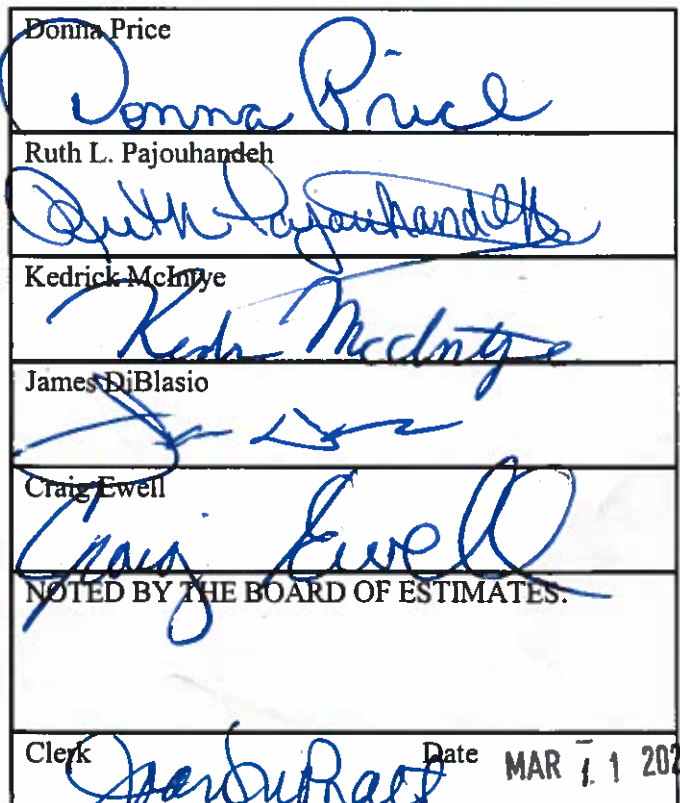 Donna Price
Donna Price
Ruth L. Pajouhandeh
Ruth Pajouhandeh
Kedrick McIntye
McIntye
James DiBlasio
Craig Ewell
Craig Ewell
NOTED BY THE BOARD OF ESTIMATES.
Clerk Date MAR 11 202